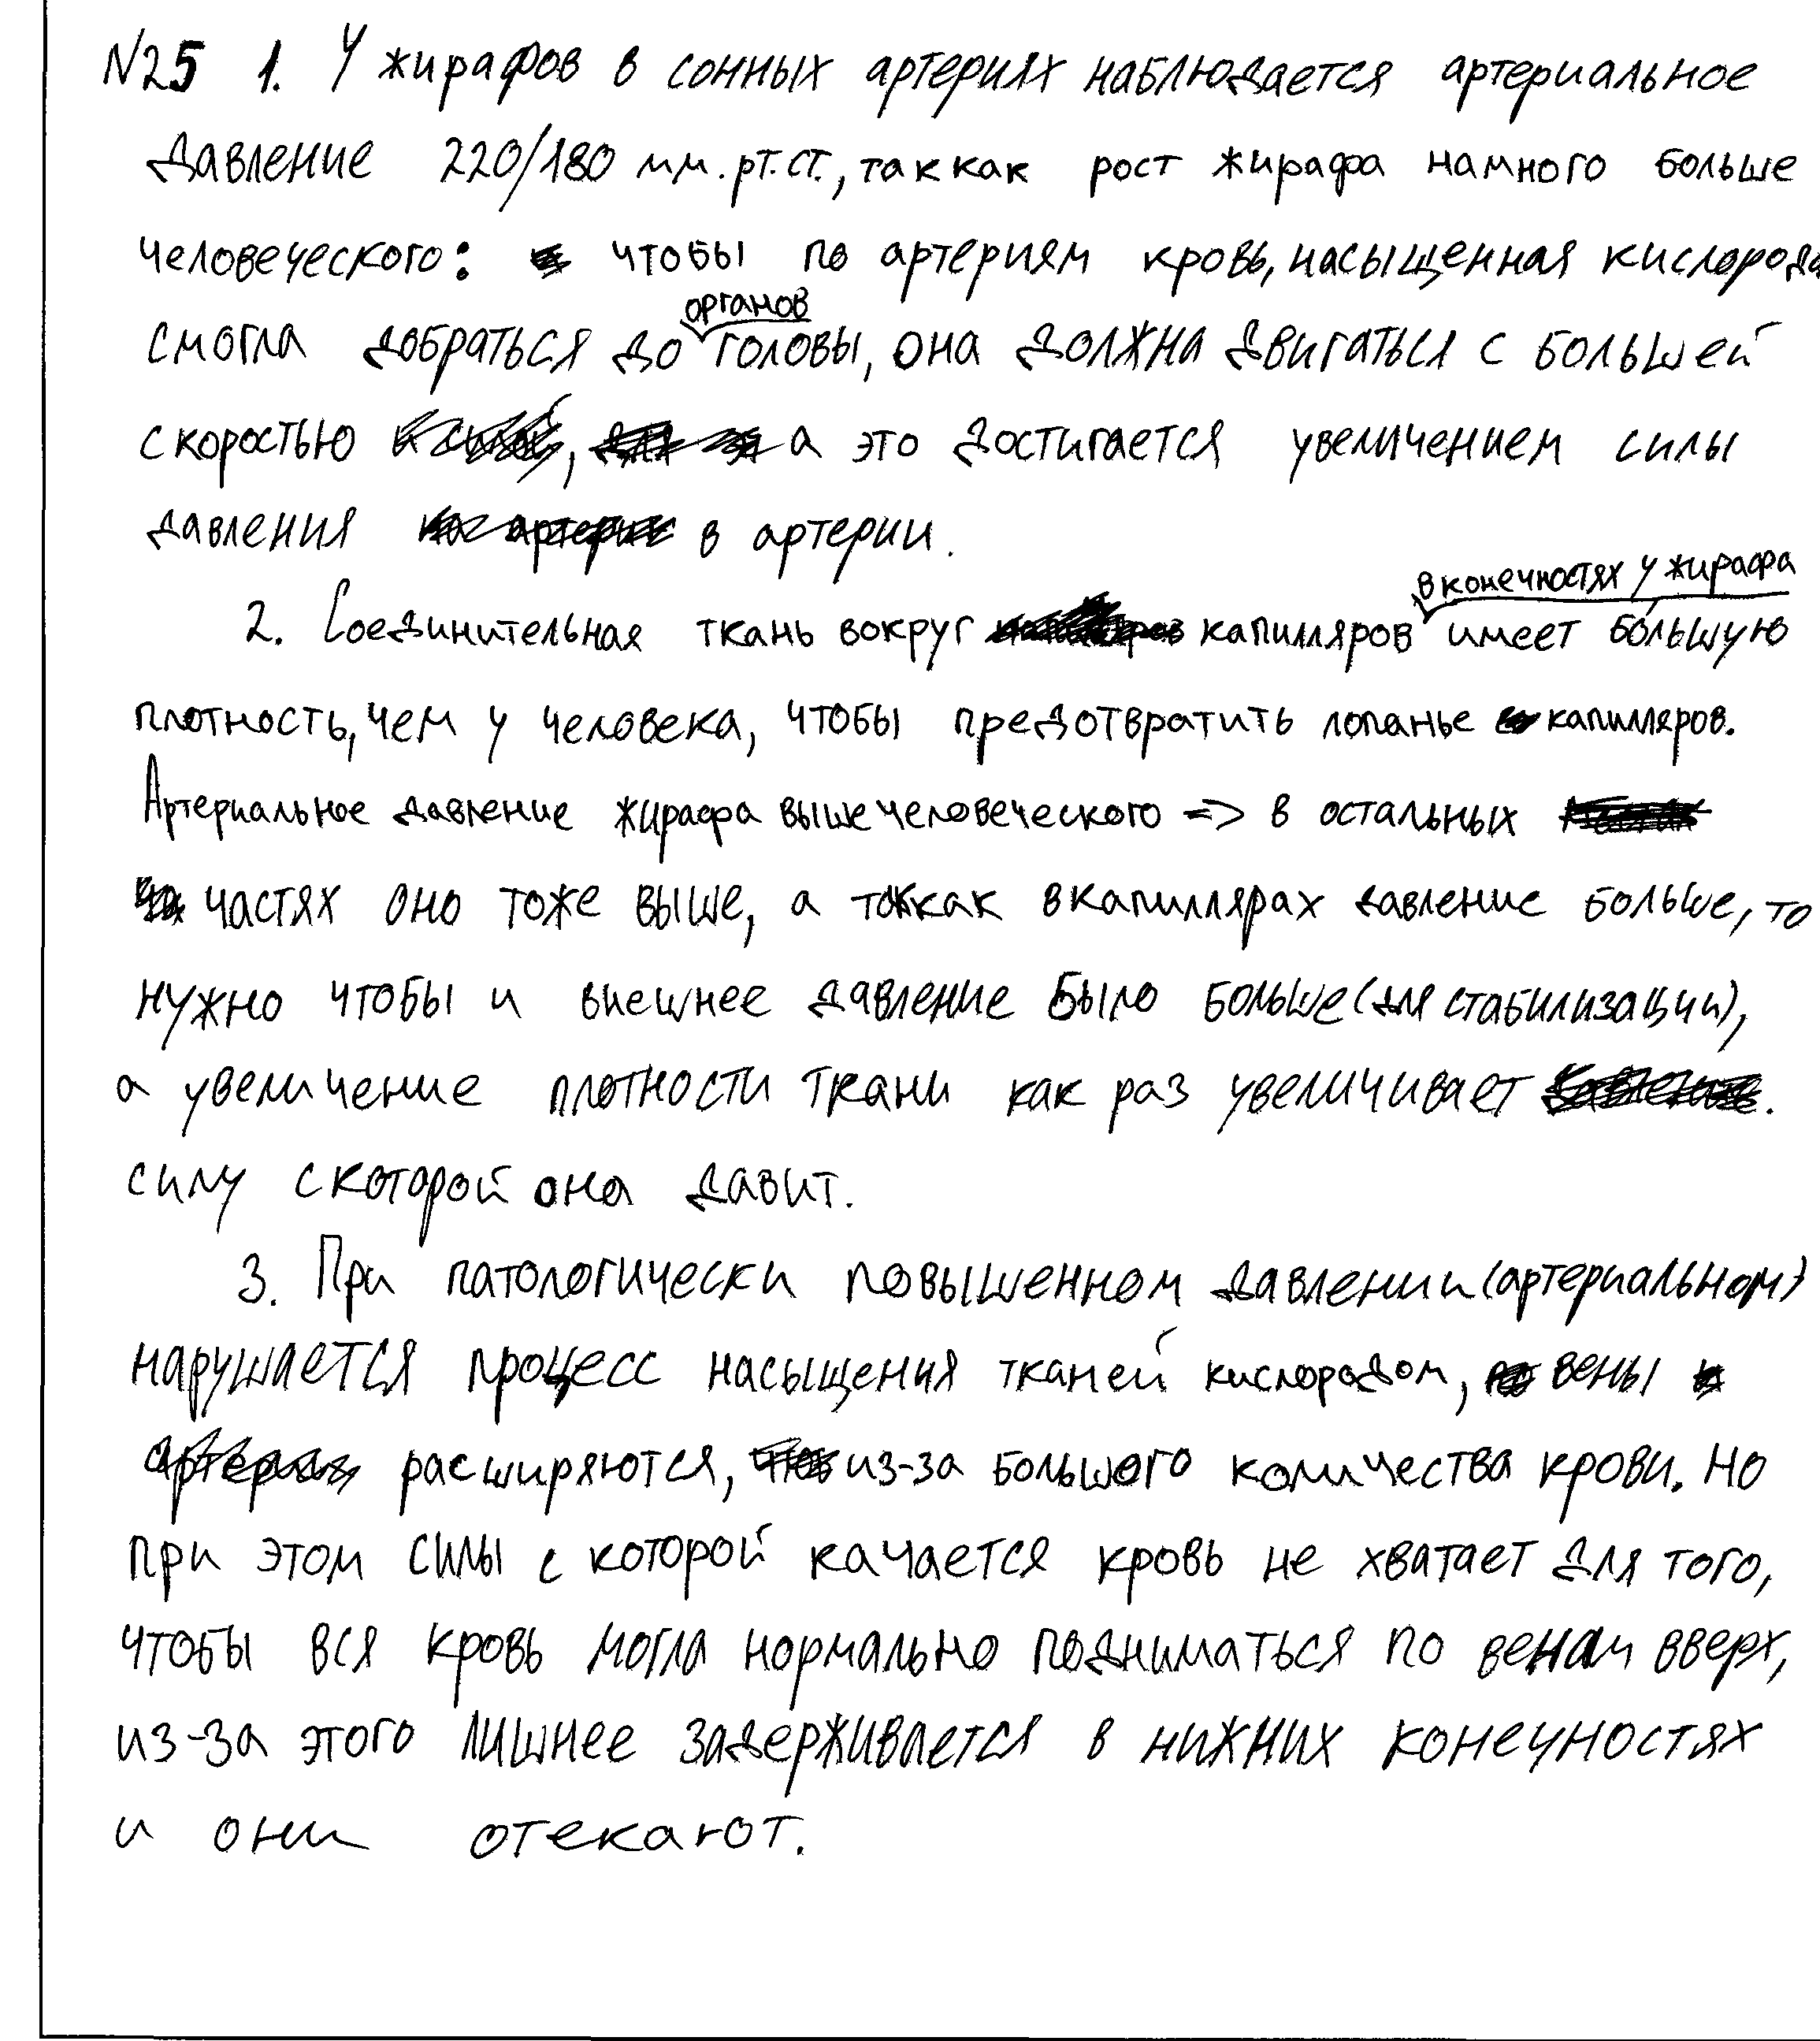 N25 1. У жирафов в сонных артериях наблюдается артериальное
давление 220/180 мм.рт.ст., так как рост жирафа намного больше
человеческого: чтобы по артериям кровь, насыщенная кислорода
смогла добраться до органов головы, она должна двигаться с большей
скоростью, а это достигается увеличением силы
давления в артерии.
2. Соединительная ткань вокруг капилляров в конечностях у жирафа имеет бо́льшую
плотность, чем у человека, чтобы предотвратить лопанье капилляров.
Артериальное давление жирафа выше человеческого => в остальных
частях оно тоже выше, а так как в капиллярах давление больше, то
нужно чтобы и внешнее давление было больше (для стабилизации),
а увеличение плотности ткани как раз увеличивает
силу с которой она давит.
3. При патологически повышенном давлении (артериальном)
нарушается процесс насыщения тканей кислородом, вены
расширяются, из-за большого количества крови. Но
при этом силы с которой качается кровь не хватает для того,
чтобы вся кровь могла нормально подниматься по венам вверх,
из-за этого лишнее задерживается в нижних конечностях
и они отекают.